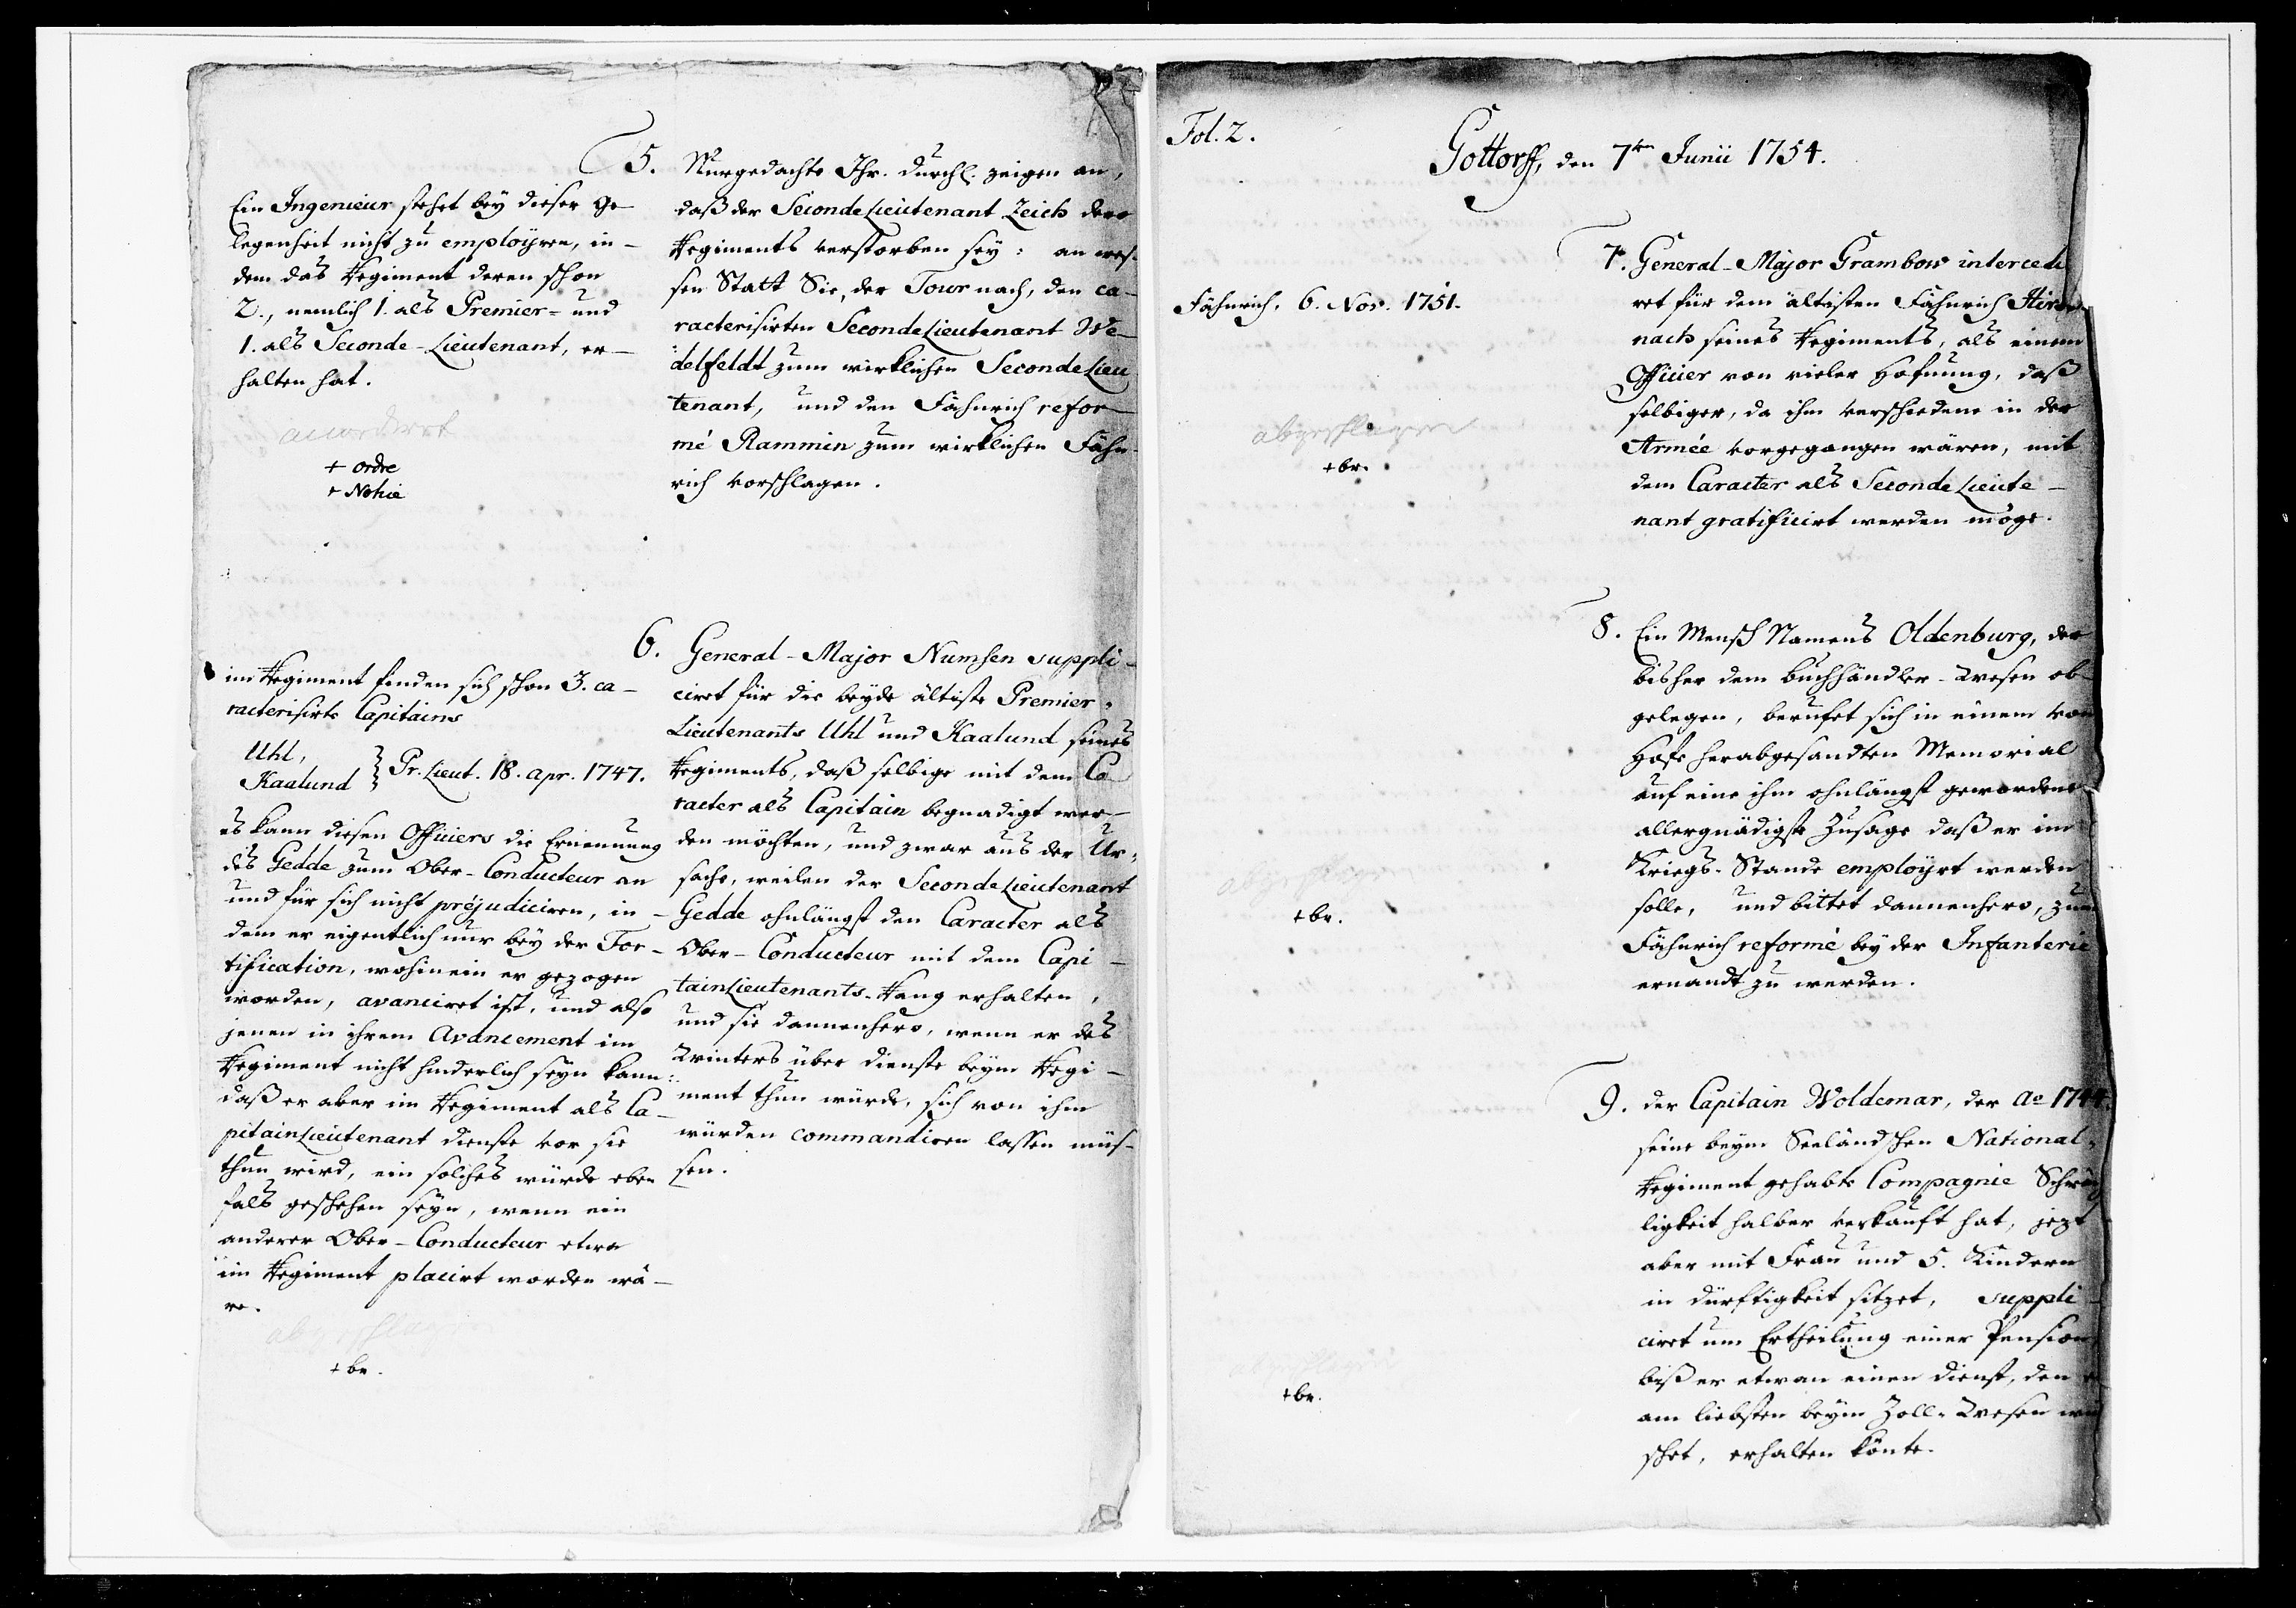 5. Nurgedachte Ihr. Durchl. zeigen an,
daß der SecondeLieutenant Zeich dero
Regiments verstorben sey: an wes-
sen Statt Sie, der Tour nach, den ca-
racterisirten SecondeLieutenant We-
delfeldt zum wirklichen SecondeLieu
tenant, und den Fähnrich refor-
mé Rammin zum wirklichen Fähn-
rich vorschlagen.
Ein Ingenieur stehet bey dieser Ge-
legenheit nicht zu employren, in-
dem das Regiment deren schon
2., nemlich 1. als Premier- und
1. als Seconde-Lieutenant, er-
halten hat.
accorderet
+ ordre
+ Notice
6. General-Major Numsen suppli-
ciret für die beyde ältiste Premier-
Lieutenants Uhl und Kaalund seines
Regiments, daß selbige mit dem Ca
racter als Capitain begnadigt wer-
den möchten, und zwar aus der Ur-
sache, weilen der SecondeLieutenant
Gedde ohnlängst den Caracter als
Ober-Conducteur mit dem Capi-
tainLieutenants-Rang erhalten,
und sie dannenhero, wenn er des
Winters über Dienste beym Regi-
ment thun würde, sich von ihm
würden commandiren lassen müs-
sen.
im Regiment finden sich schon 3. ca-
racterisirte Capitains
Uhl,
Kaalund } Pr. Lieut. 18. apr. 1747.
es kann diesen Officiers die Ernennung
des Gedde zum Ober-Conducteur an
und für sich nicht préjudiciren, in-
dem er eigentlich nur bey der For-
tification, wohinein er gezogen
worden, avanciret ist, und also
jenen in ihrem Avancement im
Regiment nicht hinderlich seyn kann:
daß er aber im Regiment als Ca-
pitainLieutenant Dienste vor sie
thun wird, ein solches würde eben
fals geschehen seyn, wenn ein
anderer Ober-Conducteur etwa
im Regiment placirt worden wä-
re.
abgeschlagen
+ br.
Fol. 2.
Gottorff, den 7ten Junii 1754.
7. General-Major Grambow intercedi
ret für dem ältisten Fähnrich
nach seines Regiments, als einem
Officier von vieler Hofnung, daß
selbiger, da ihm verschiedene in der
Armée vorgegangen wären, mit
dem Caracter als SecondeLieute-
nant gratificirt werden möge.
Fähnrich, 6. Nov. 1751.
abgeschlagen
+ br.
8. Ein Mensch Namens Oldenburg, der
bisher dem Buchhändler-Wesen ob-
gelegen, berufet sich in einem von
Hofe herabgesandten Memorial
auf eine ihm ohnlängst gewordene
allergnädigste Zusage daß er im
Kriegs-Stande employrt werden
solle, und bittet dannenhero, zum
Fähnrich reformé bey der Infanterie
ernandt zu werden.
abgeschlagen
+ br.
9. der Capitain Woldemar, der Ao 1744.
seine beym Seeländschen National-
Regiment gehabte Compagnie Schwäch
ligkeit halber verkauft hat, jezt
aber mit Frau und 5. Kindern
in Dürftigkeit sitzet, suppli-
ciret um Ertheilung einer Pension
biß er etwan einen Dienst, den er
am liebsten beym Zoll-Wesen wün
schet, erhalten könte.
abgeschlagen
+ br.